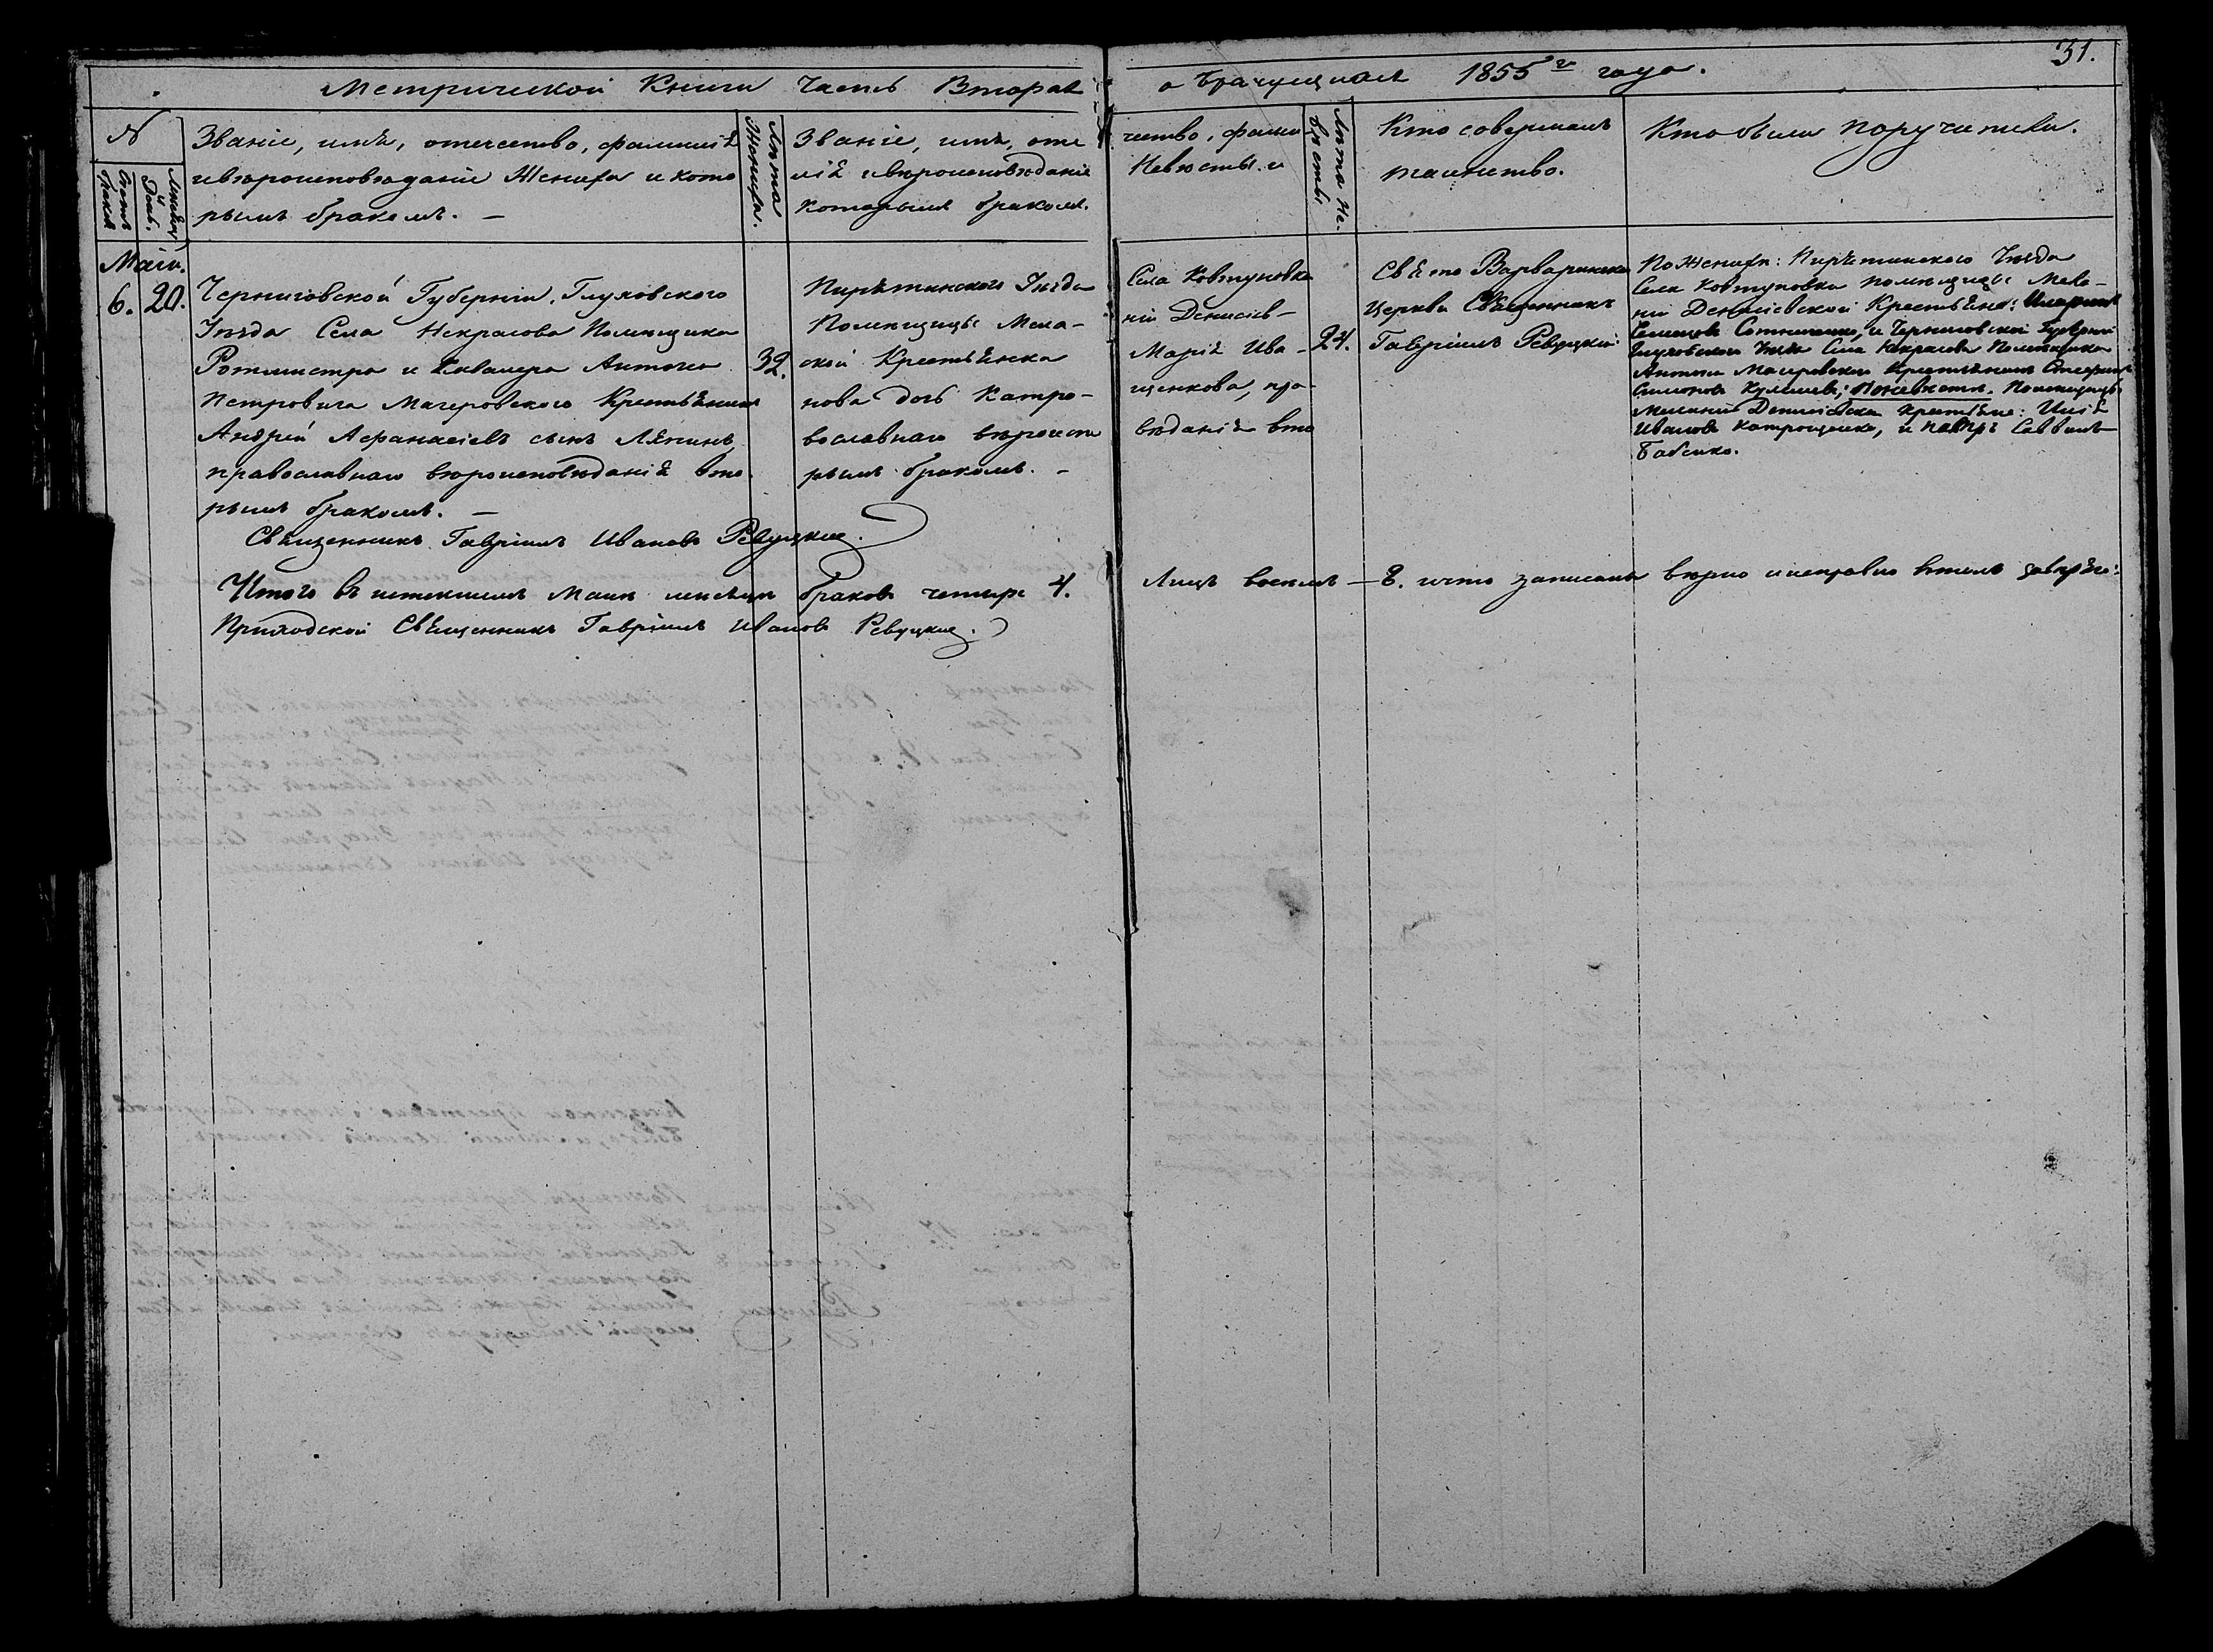 31.
Метрической Книги Часть Вторая о бракущихся 1855го года.
№
Счетъ браковъ
Мѣсяцъ и день.
Званіе, имя, отечество, фамилія
и вѣроисповѣданіе Жениха и кото
рымъ бракомъ. —
Лѣта Жениха.
Званіе, имя, оте чество, фами
лія и вѣроисповѣданіе Невѣсты и
которымъ бракомъ.
Лѣта Не-
вѣсты
Кто совершалъ
таинство.
Кто были поручители.
Маій.
6. 20.
Черниговской Губерніи, Глуховского
Уѣзда Села Некрасова Помѣщика
Ротмистра и Кавалера Антона
Петровича Мацеровского Крестьянинъ
Андрей Афанасіевъ сынъ Ляпинъ
православнаго вѣроисповѣданія вто-
рымъ бракомъ. —
32.
Пирятинского Уѣзда Села Ковтуновки
Помѣщицы Мела- ніи Денисіев-
ской Крестьянка Марія Ива-
нова дочь Катро- щенкова, пра-
вославнаго вѣроиспо вѣданія вто
рымъ бракомъ. —
24.
Свято Варваринской
Церкви Священникъ
Гавріилъ Ревуцкій:
По Женихѣ: Пирятинского Уѣзда
Села Ковтуновки помѣщицы Мела-
ніи Денисіевской Крестьяне: Иларіонъ
Семеновъ Сотниченко, и Черниговской Губерніи
Глуховского Уѣзда Села Некрасова Помѣщика
Антона Мацеровского Крестьянинъ
Симоновъ; По невѣстѣ. Помѣщицы
Меланіи Денисіевской Крестьяне: Илія
Ивановъ Катрощенко, и Петръ Саввинъ
Бабенко.
Священникъ Гавріилъ Ивановъ Ревуцкій.
Итого въ истекшемъ Маіи мѣсяцѣ браковъ четыре 4. Лицъ восемь — 8. что записаны вѣрно и исправно въ томъ завѣряю:
Приходской Священникъ Гавріилъ Ивановъ Ревуцкій.